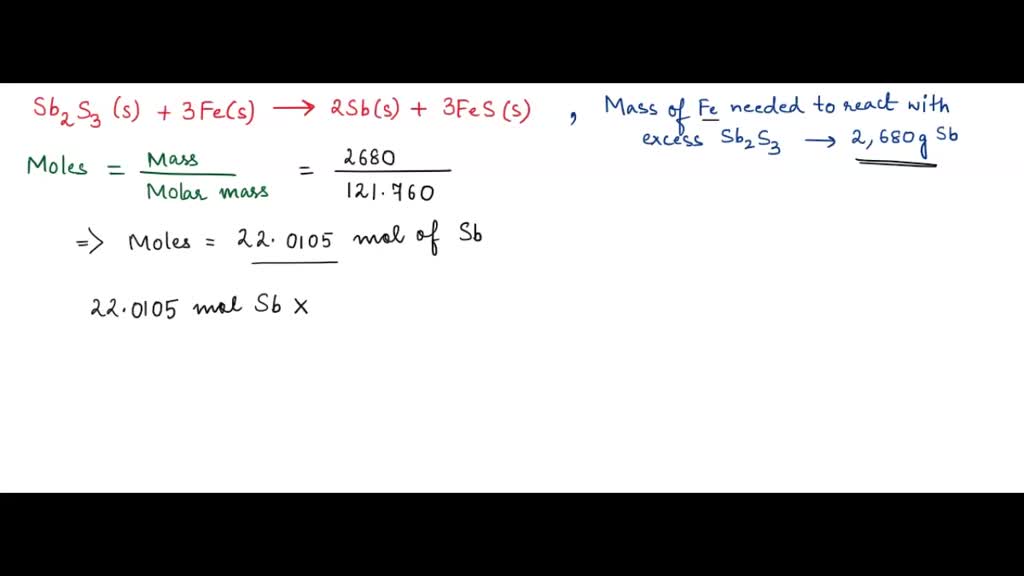 Sb₂S₃ (s) + 3Fe(s) → 2Sb(s) + 3FeS(s) , Mass of Fe needed to react with
excess Sb₂S₃ → 2,680g Sb
Moles = Mass / Molar mass = 2680 / 121.760
=> Moles = 22.0105 mol of Sb
22.0105 mol Sb ×